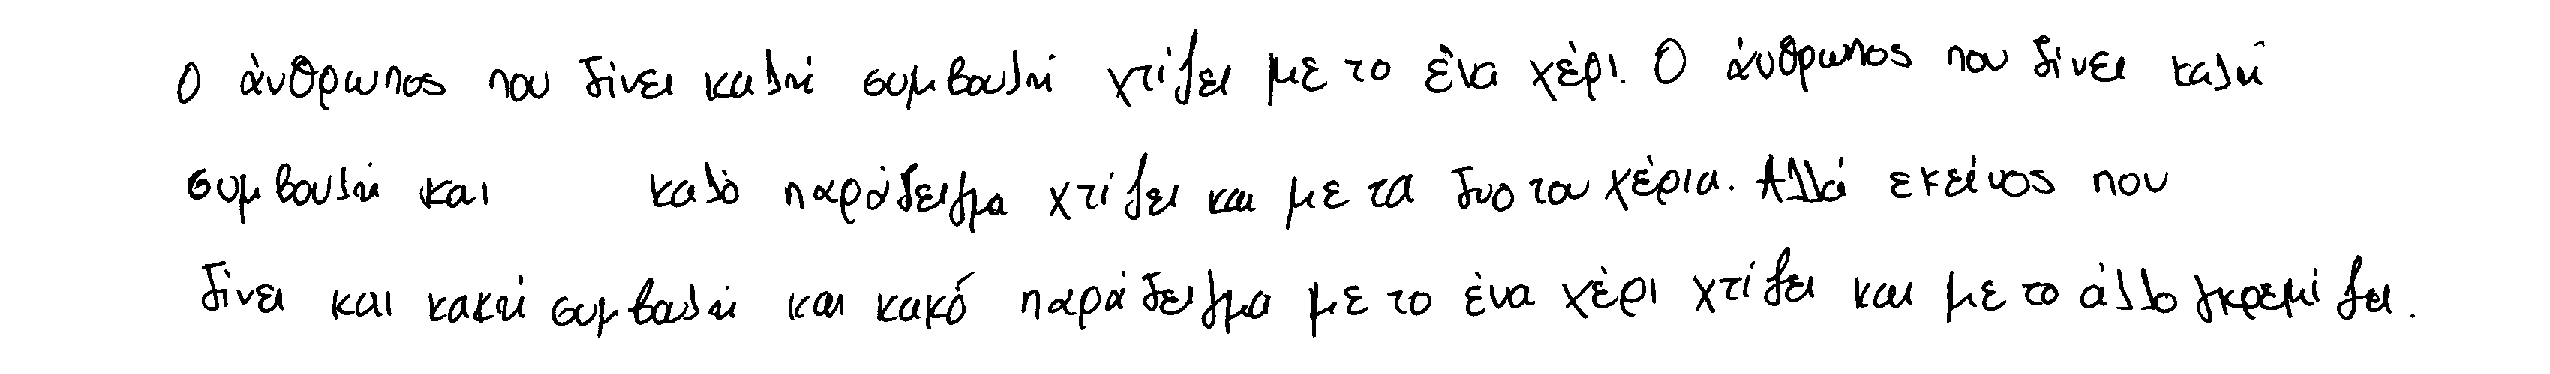 Ο άνθρωπος που δίνει καλή συμβουλή χτίζει με το ένα χέρι. Ο άνθρωπος που δίνει καλή
συμβουλή και καλό παράδειγμα χτίζει και με τα δυο του χέρια. Αλλά εκείνος που
δίνει και κακή συμβαλή και κακό παράδειγμα με το ένα χέρι χτίζει και με το άλλο γκρεμίζει.